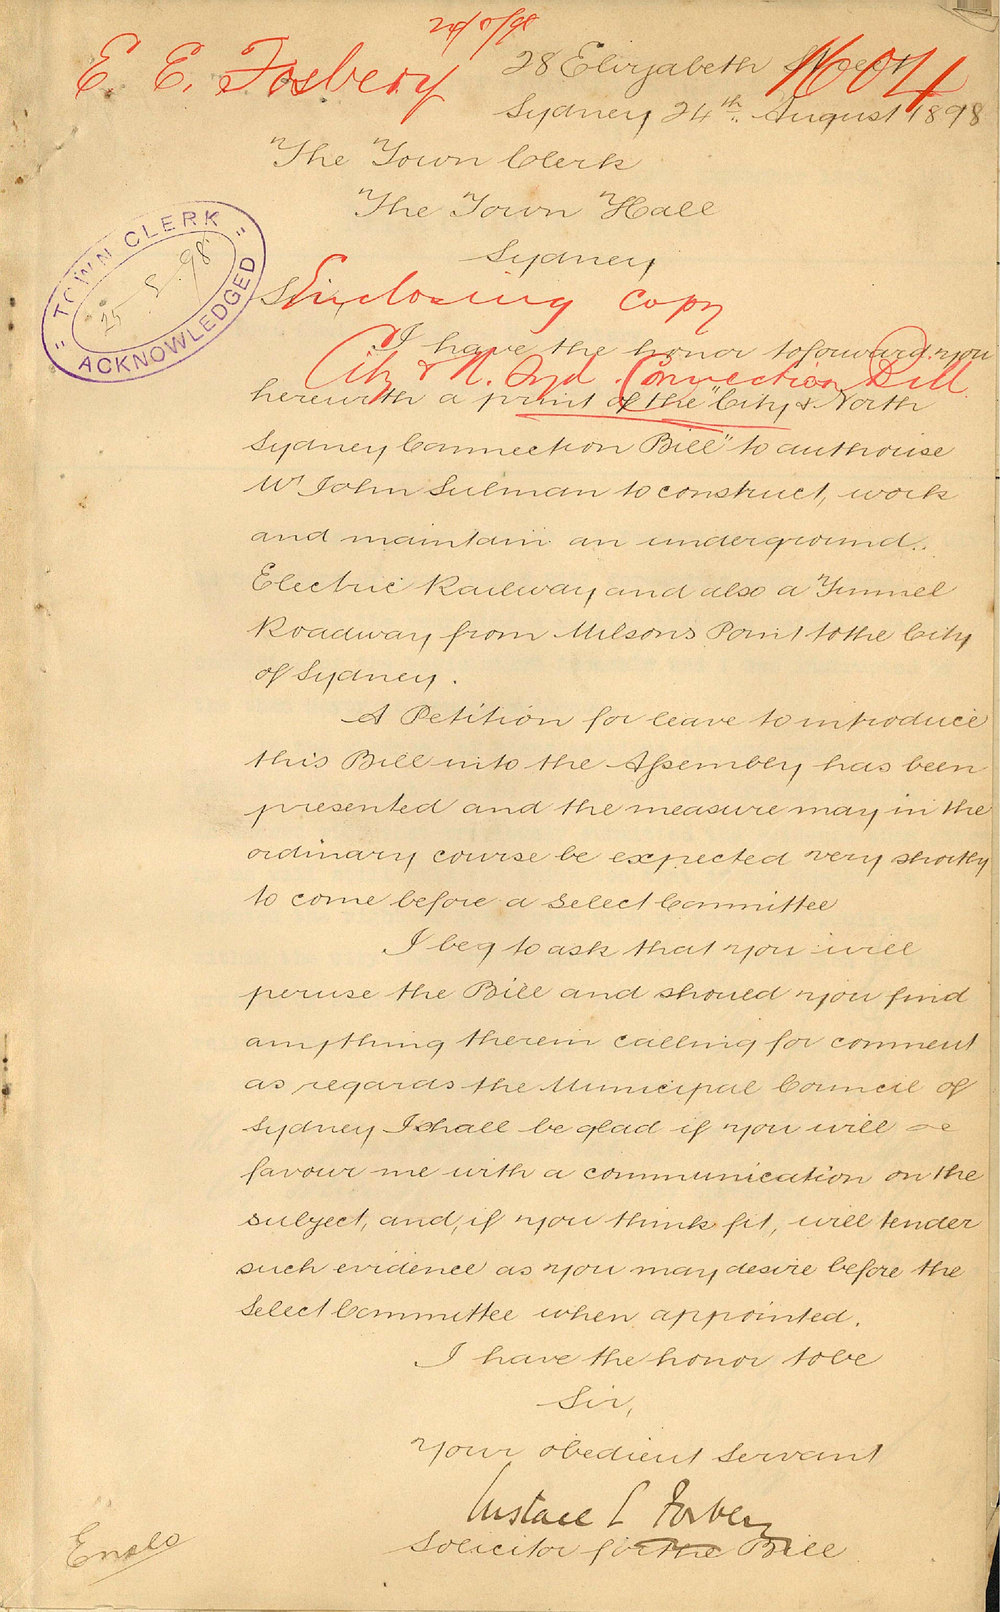 24/8/98
E. E. Fosbery
1604
28 Elizabeth Street
Sydney 24th. August 1898
The Town Clerk
The Town Hall
Sydney
TOWN CLERK
25-8-98
ACKNOWLEDGED
Sir,
Enclosing copy
I have the honor to forward you
City & N. Syd. Connection Bill
herewith a print of the "City & North
Sydney Connection Bill" to authorise
Mr John Sulman to construct, work
and maintain an underground
Electric Railway and also a Tunnel
Roadway from Milsons Point to the City
of Sydney.
A Petition for leave to introduce
this Bill into the Assembly has been
presented and the measure may in the
ordinary course be expected very shortly
to come before a Select Committee
I beg to ask that you will
peruse the Bill and should you find
anything therein calling for comment
as regards the Municipal Council of
Sydney I shall be glad if you will
favour me with a communication on the
subject, and, if you think fit, will tender
such evidence as you may desire before the
Select Committee when appointed.
I have the honor to be
Sir,
Your obedient Servant
Eustace E Fosbery
Solicitor for the Bill
Enclo